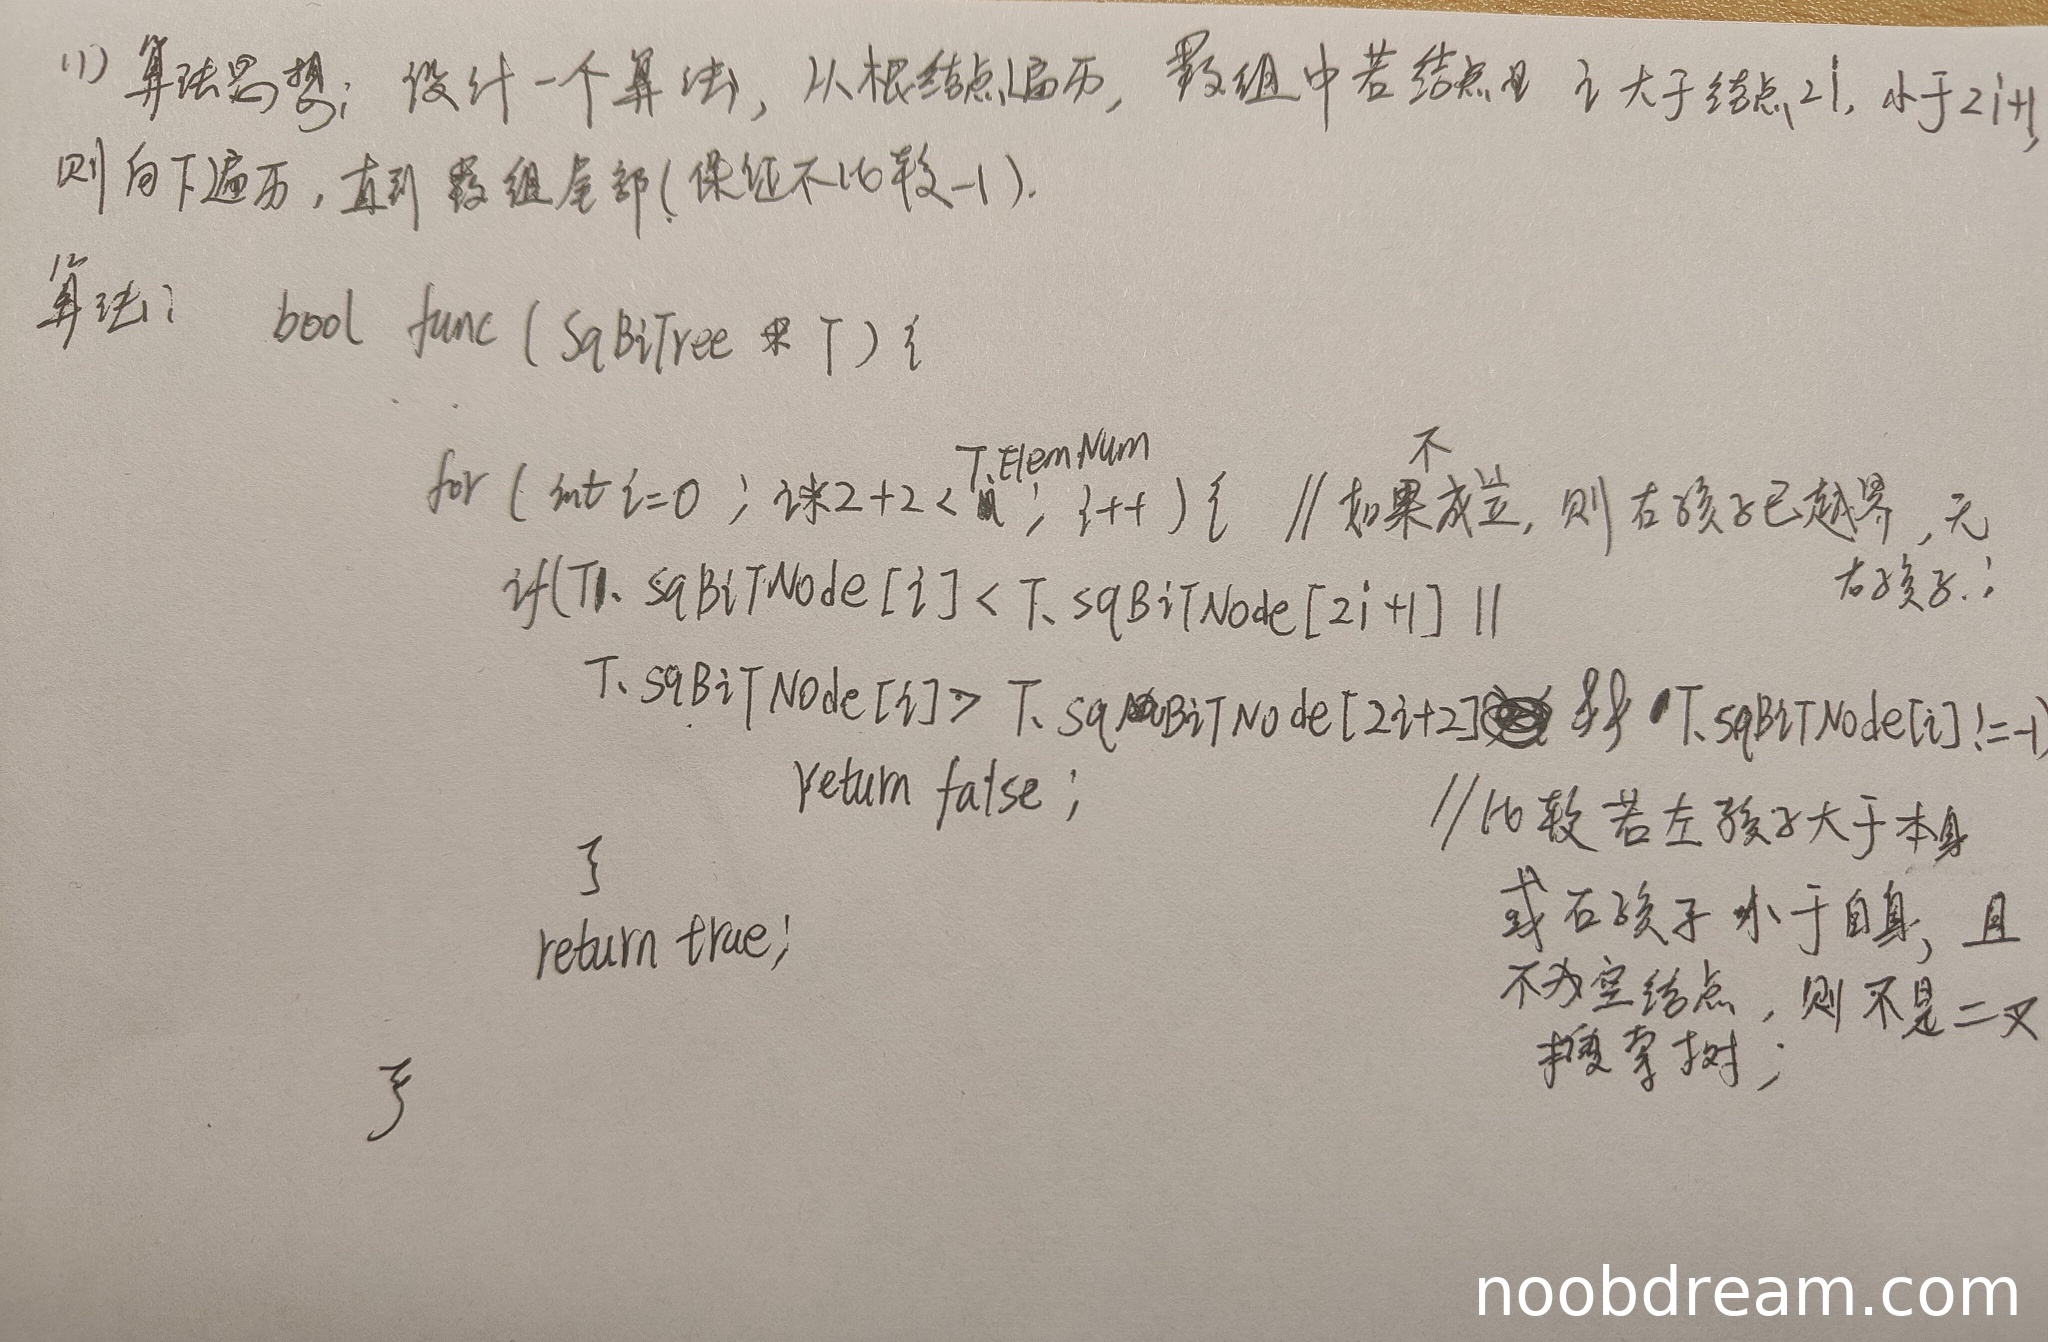 (1) 算法思想：设计一个算法，从根结点遍历，数组中若结点 i 大于结点2i，小于2i+1，
则向下遍历，直到数组尾部(保证不比较-1).
算法： bool func (SqBiTree * T) {
for (int i=0 ; i*2+2 < T.ElemNum ; i++) { // 如果不成立, 则右孩子已越界, 无
右孩子.;
if(T. SqBiTNode[i] < T. SqBiTNode[2i+1] ||
T. SqBiTNode[i] > T. SqBiTNode[2i+2] && T.SqBiTNode[i] != -1)
return false ;
// 比较若左孩子大于本身
}
或右孩子小于自身, 且
return true;
不为空结点, 则不是二叉
搜索树;
}
noobdream.com